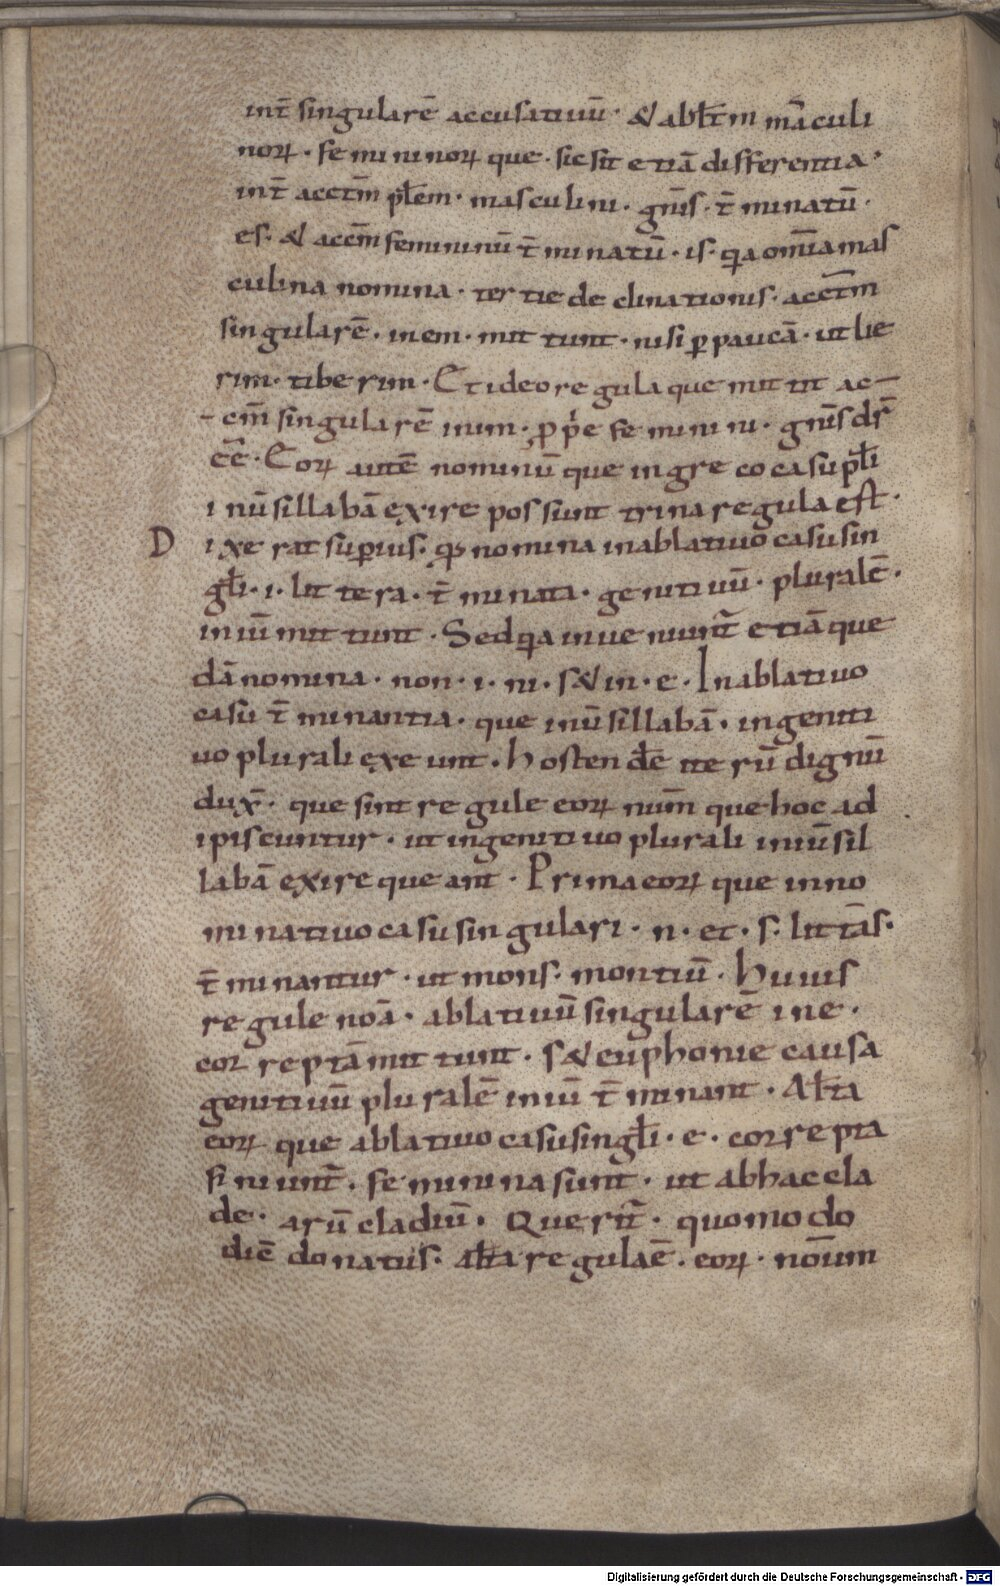 int̄ singularē accusatiuū· & abłtm mãculi
noꝝ· femininoꝝ que· sic sit etiā differentia·
int̄ acctm̄ płem· masculini· gn̄is· t̄minatū·
es· & accm̄ femininū t̄minatū· is· qa om̄ia mas
culina nomina· tertie declinationis· acctm̄
singularē· in em· mittunt· nisi ꝑ paucā· ut lie
rim· tiberim· Et ideo regula que mittit ac–
–cm̄ singularē in im· ꝓp̄e feminini· gn̄is dr̄
ēē· Eoꝝ autē nominū que in greco casu płi
in ū sillabā exire possunt trina regula est·
Dixerat superius· qđ nomina in ablatiuo casu sin
głi· i· littera· t̄minata· genitiuū· pluralē·
in iū mittunt· Sed qa inueniunt̄ etiā que
dā nomina· non· i· ni· s& in· e· In ablatiuo
casu t̄minantia· que in ū sillabā· in geniti
uo plurali exeunt· hostendē iterū dignū
dux̄· que sint regule eoꝝ num̄ que hoc ad
ipiscuntur· ut in genitiuo plurali in iū sil
labā exire queant· Prima eoꝝ que in no
minatiuo casu singulari· n· et· s· littās·
t̄minantur· ut mons· montiū· Huius
regule noā· ablatiuū singularē in e·
correptā mittunt· s& euphonie causa
genitiuū pluralē in iū t̄minant· Ałta
eoꝝ que ablatiuo casu singłi· e· correpta
finiunt̄· feminina sunt· ut ab hac cla
de· arū cladiū· Querit̄· quomodo
diē donatus· ałta regula ē· eoꝝ· noīum
Digitalisierung gefördert durch die Deutsche Forschungsgemeinschaft - DFG